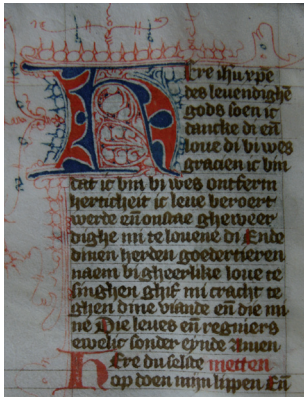 Here ihu xpe
des leuendighē
gods soen ic
dancke di eñ
loue di bi wes
gracien ic bin
dat ic bin bi wes ontferm
herticheit ic leue beroert
werde eñ onstae gheweer
dighe mi te louene di Ende
dinen herden goedertieren
naem bi gheerlike loue te
singhen ghif mi cracht te
ghen dine viande eñ die mi
ne Die leues eñ regniers
ewelic sonder eynde Amen
Here du selste metten
op doen mijn lippen Eñ